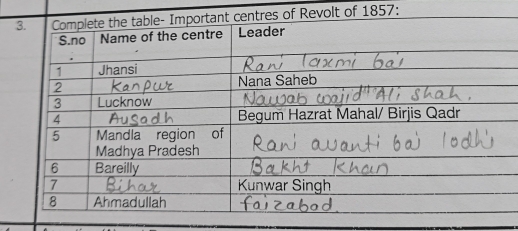 3. Complete the table- Important centres of Revolt of 1857:
S.no Name of the centre Leader
.
1 Jhansi Rani laxmi bai
2 Kanpur Nana Saheb
3 Lucknow Nawab wajid Ali shah.
4 Ausadh Begum Hazrat Mahal/ Birjis Qadr
5 Mandla region of
Madhya Pradesh Rani avanti bai lodhi
6 Bareilly Bakht Khan
7 Bihar Kunwar Singh
8 Ahmadullah faizabad.